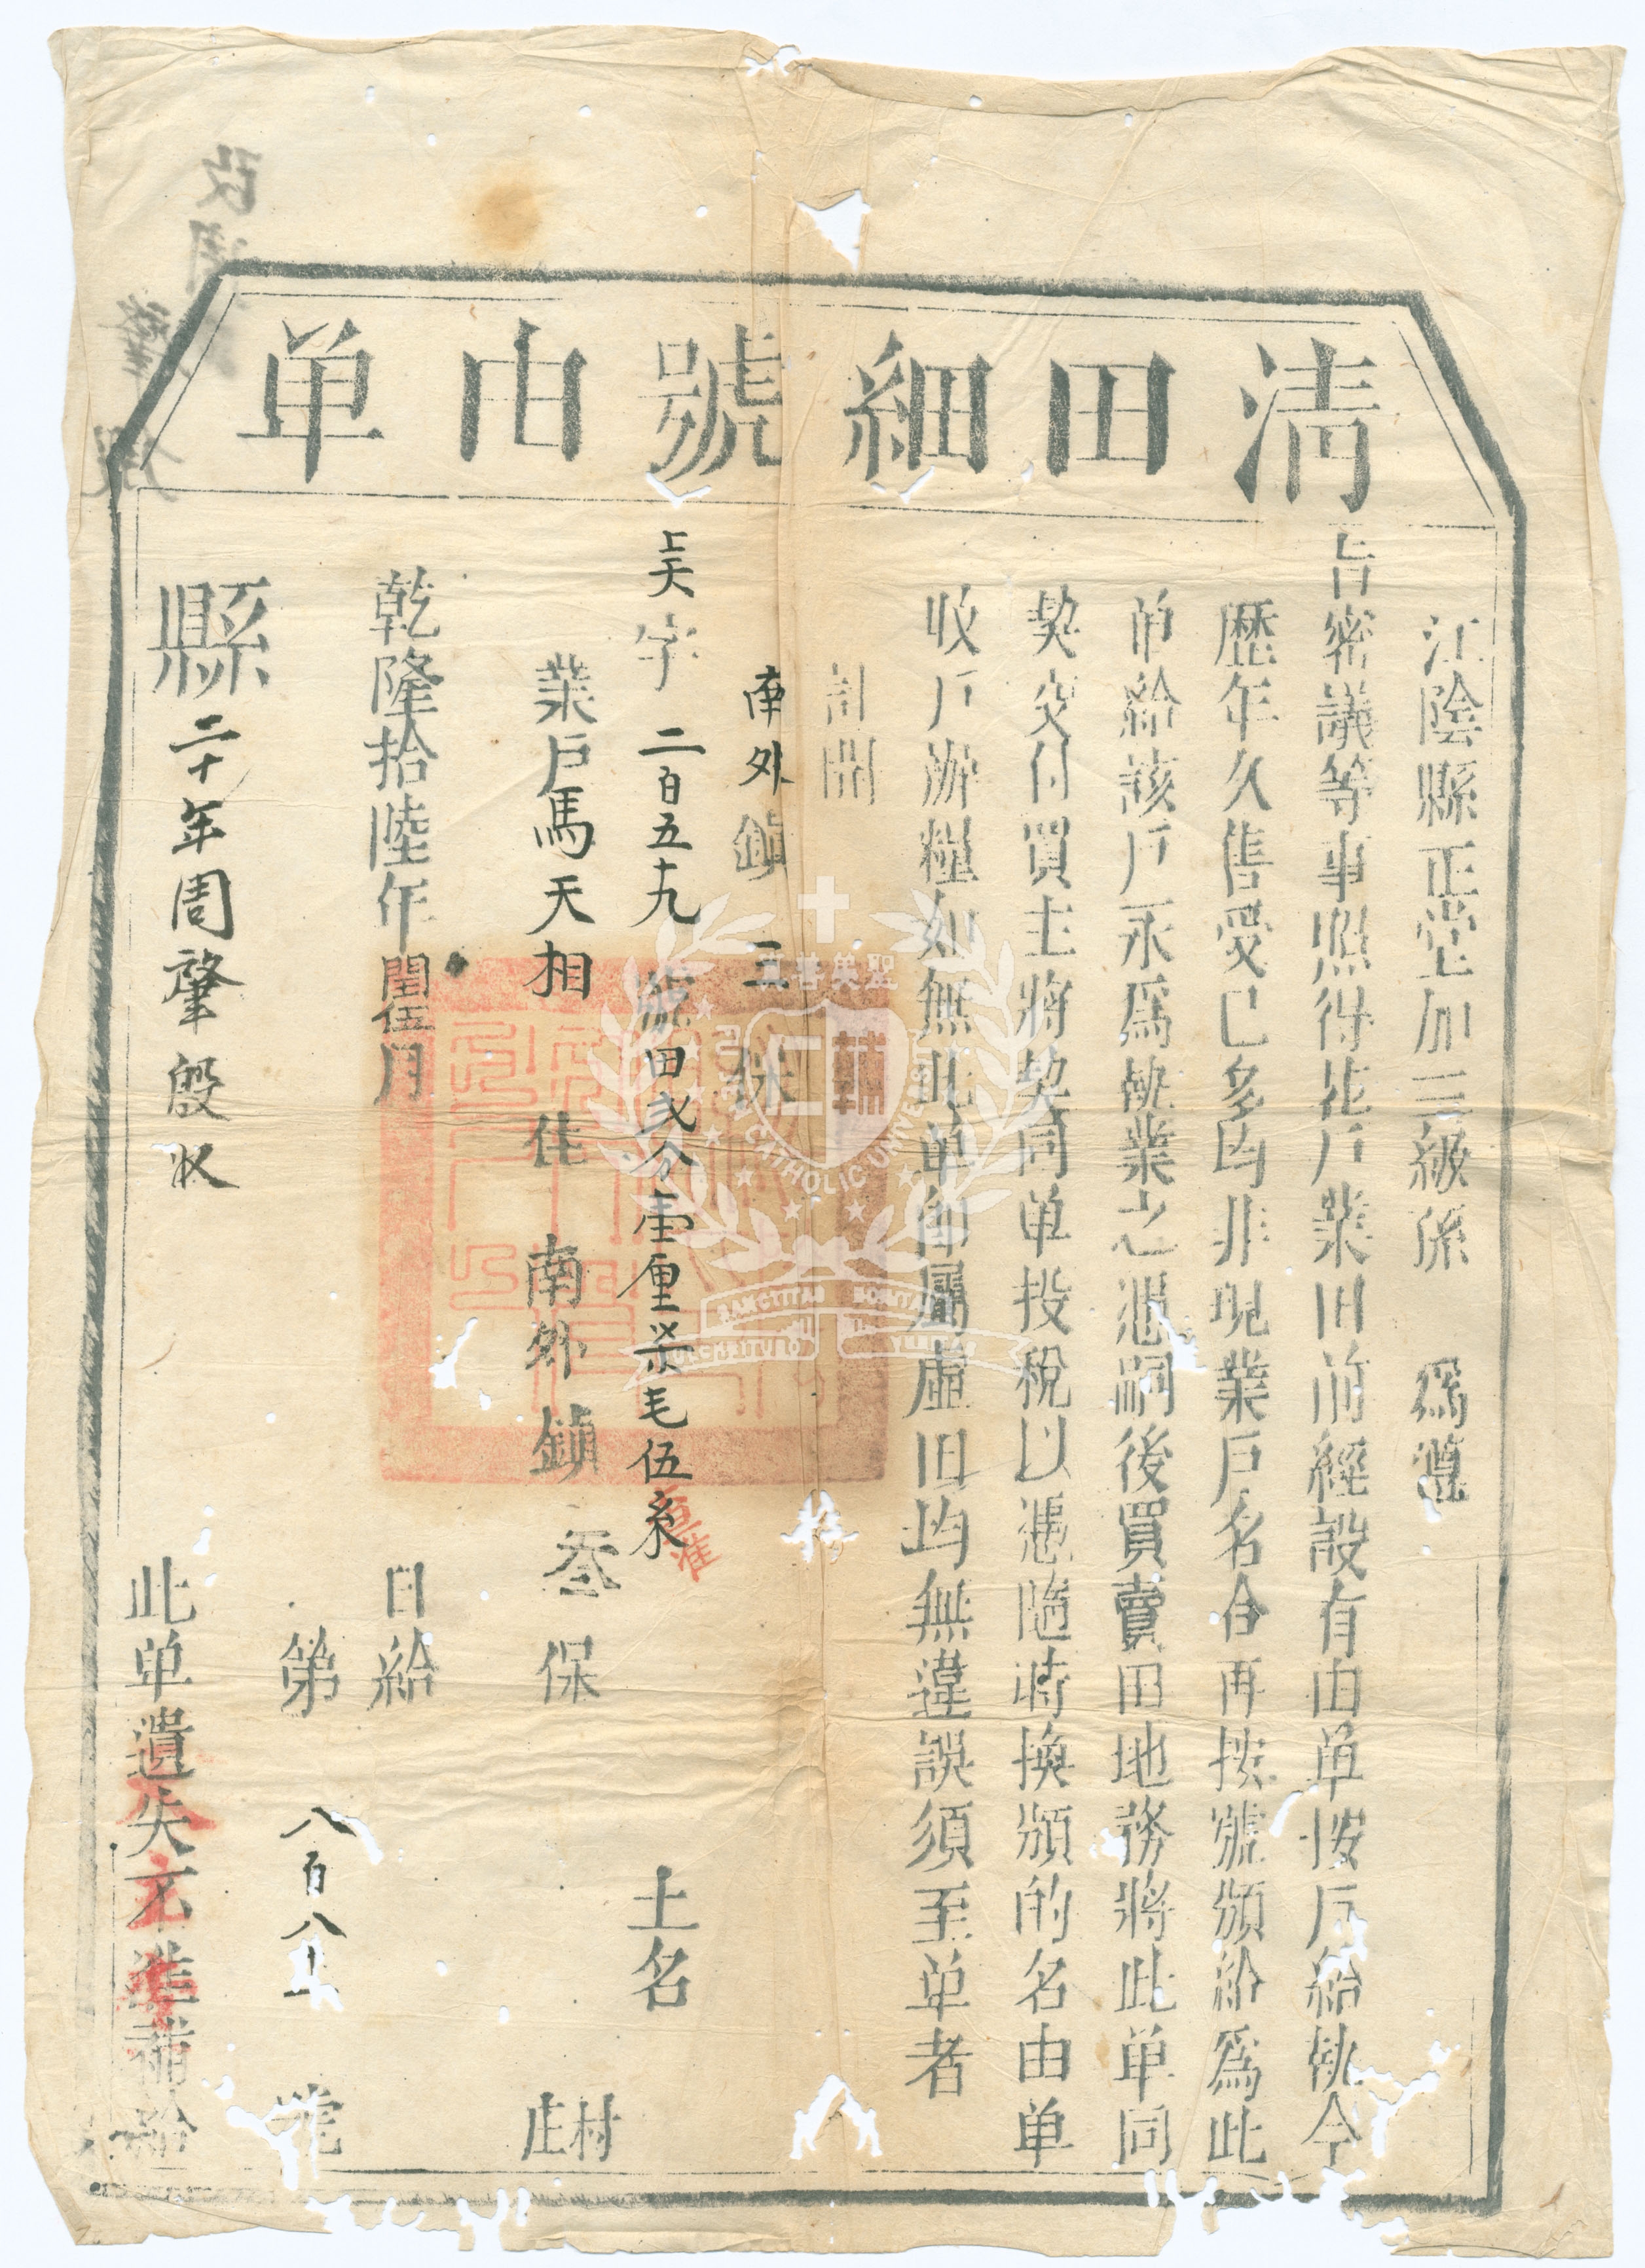 清田細號由单
江陰縣正堂加三級係 爲遵
旨密議等事照得花戶業田前經設有由单按戶給執今
歷年久售受已多均非現業戶名合再按號頒給爲此
单給該戶永爲執業之憑嗣後買賣田地務將此单同
契交付買主將契同单投稅以憑隨時換頒的名由单
收戶辦糧如無此单即屬虛田均無違誤須至单者
計開
南外鎮 三 保
字 二百五十九 號田弍分壹厘柒毛伍系 土名
業戶馬天相 住 南外鎮 叁 保 村庄
乾隆拾陸年閏伍月 日給
第 八百八十 號
縣 二十年周肇殷收
此单遺失不准補給
改周
聖英普頁
輔仁
CATHOLIC UNIVE
SANCTITAS BONITAS
PULCHRITUDO VERITAS